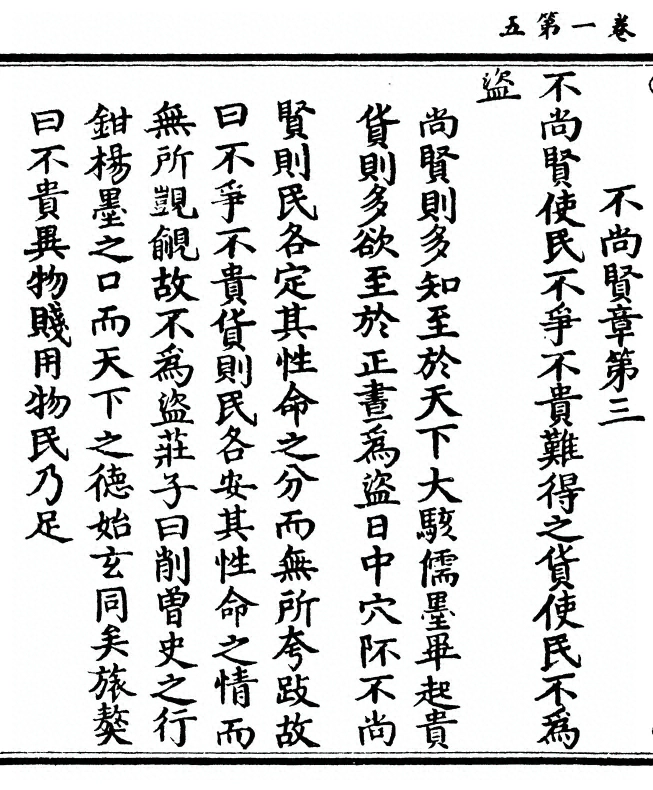 卷一第五
不尚賢章第三
不尚賢使民不爭不貴難得之貨使民不爲
盜
尚賢則多知至於天下大駭儒墨畢起貴
貨則多欲至於正晝爲盜日中穴阫不尚
賢則民各定其性命之分而無所夸跂故
曰不爭不貴貨則民各安其性命之情而
無所覬覦故不爲盜莊子曰削曾史之行
鉗楊墨之口而天下之德始玄同矣旅獒
曰不貴異物賤用物民乃足